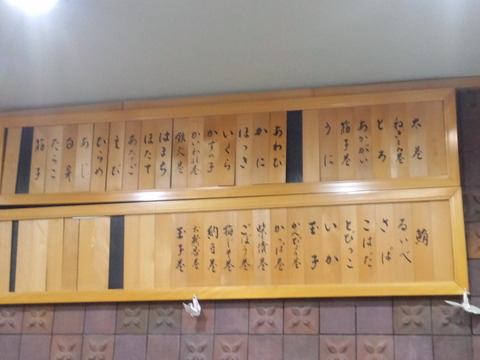 太巻
ねぎとろ巻
とろ
あかがい
筋子巻
うに
あわび
かに
ほっき
いくら
かずの子
かいわれ巻
鉄火巻
はまち
ほたて
あなご
えび
ひらめ
あじ
白身
たらこ
筋子
鮪
るいべ
さば
こはだ
とびっこ
いか
玉子
かんぴょう巻
かっぱ巻
味噌漬巻
ごぼう巻
梅しそ巻
納豆巻
お新香巻
玉子巻